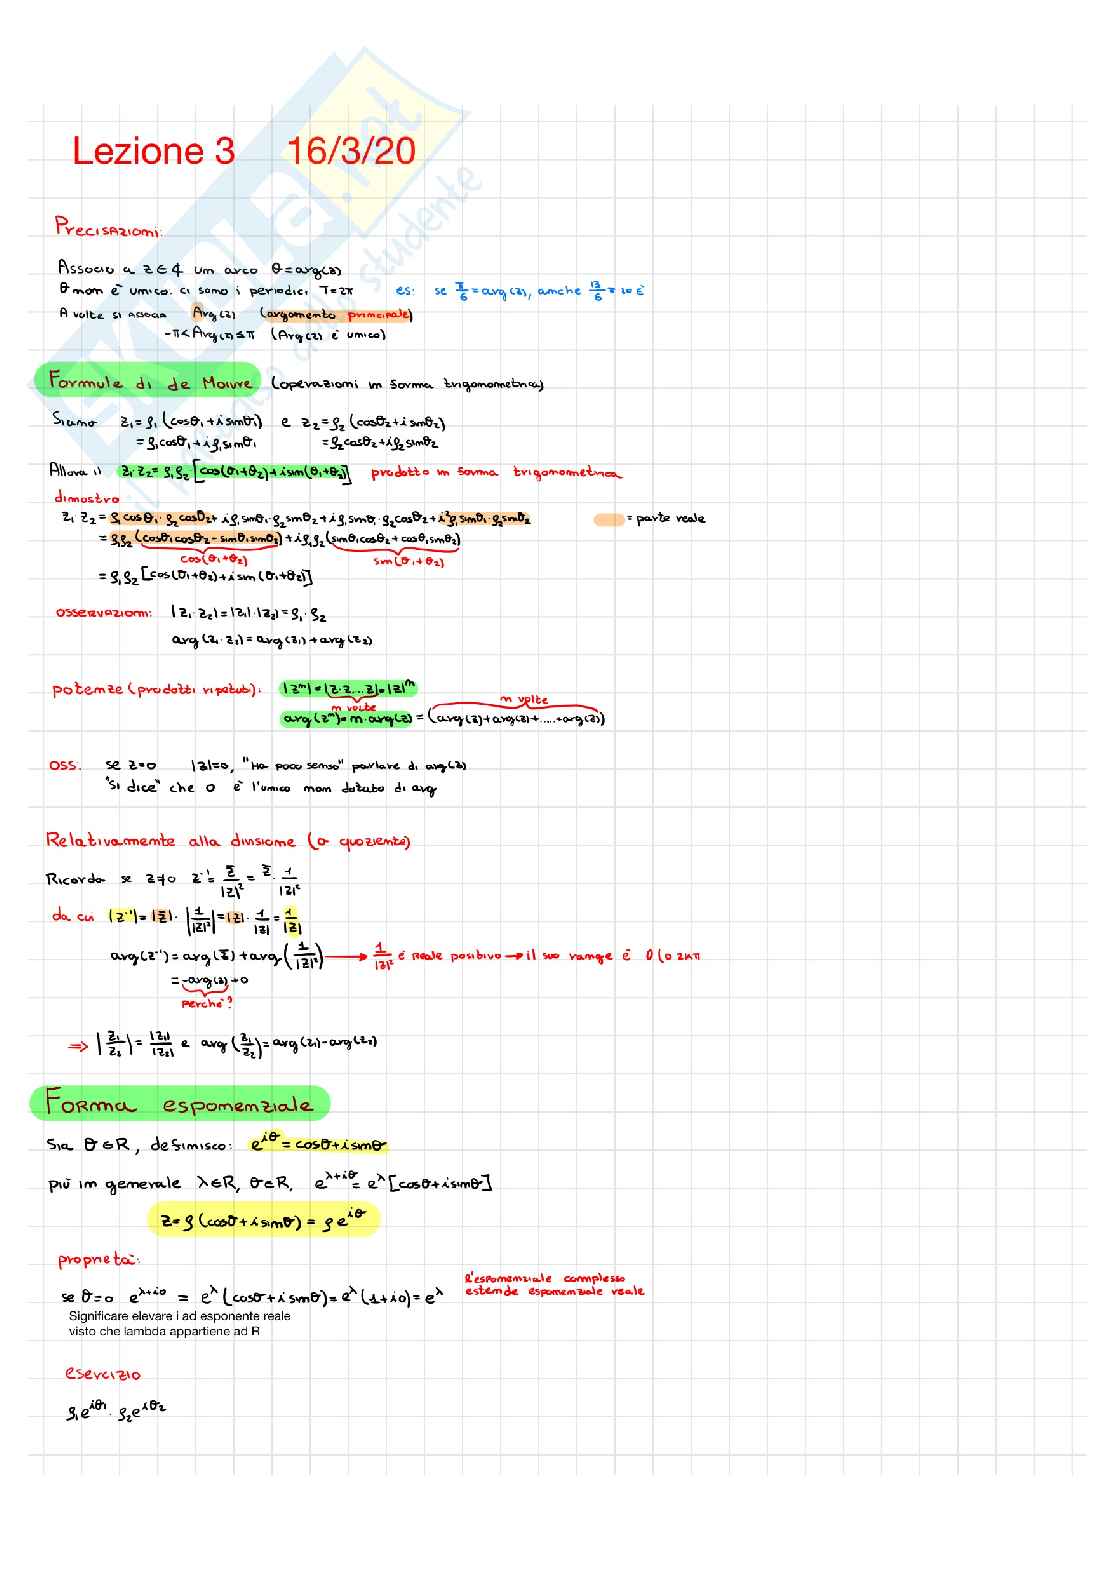 Lezione 3 16/3/20
Precisazioni:
Associo a z ∈ ℂ un arco θ = arg(z)
θ non è unico. ci sono i periodici T=2π es: se π/6 = arg(z), anche 13/6 π lo è
A volte si associa Arg(z) (argomento principale)
-π < Arg(z) ≤ π (Arg(z) è unico)
Formule di de Moivre (operazioni in forma trigonometrica)
Siano z₁ = ρ₁(cosθ₁ + i sinθ₁) e z₂ = ρ₂(cosθ₂ + i sinθ₂)
= ρ₁cosθ₁ + iρ₁sinθ₁ = ρ₂cosθ₂ + iρ₂sinθ₂
Allora il z₁·z₂ = ρ₁ρ₂[cos(θ₁+θ₂) + i sin(θ₁+θ₂)] prodotto in forma trigonometrica
dimostro
z₁·z₂ = ρ₁cosθ₁·ρ₂cosθ₂ + iρ₁sinθ₁·ρ₂sinθ₂ + iρ₁sinθ₁·ρ₂cosθ₂ + i²ρ₁sinθ₁·ρ₂sinθ₂ = parte reale
= ρ₁ρ₂(cosθ₁cosθ₂ - sinθ₁sinθ₂) + iρ₁ρ₂(sinθ₁cosθ₂ + cosθ₁sinθ₂)
cos(θ₁+θ₂) sin(θ₁+θ₂)
= ρ₁ρ₂[cos(θ₁+θ₂) + i sin(θ₁+θ₂)]
osservazioni: |z₁·z₂| = |z₁|·|z₂| = ρ₁·ρ₂
arg(z₁·z₂) = arg(z₁) + arg(z₂)
potenze (prodotti ripetuti): |zⁿ| = |z·z...z| = |z|ⁿ
n volte n volte
arg(zⁿ) = n·arg(z) = (arg(z)+arg(z)+....+arg(z))
oss: se z=0 |z|=0, "Ha poco senso" parlare di arg(z)
"Si dice" che 0 è l'unico non dotato di arg
Relativamente alla divisione (o quoziente)
Ricordo se z≠0 z⁻¹ = z̄/|z|² = z̄ · 1/|z|²
da cui |z⁻¹| = |z̄|·|1/|z|²| = |z|·1/|z| = 1/|z|
arg(z⁻¹) = arg(z̄) + arg(1/|z|²) → 1/|z|² è reale positivo → il suo range è 0 (o 2kπ
= -arg(z) + 0
perché?
⇒ |z₁/z₂| = |z₁|/|z₂| e arg(z₁/z₂) = arg(z₁) - arg(z₂)
Forma esponenziale
Sia θ ∈ R, definisco: e^{iθ} = cosθ + i sinθ
più in generale λ∈R, θ∈R, e^{λ+iθ} = e^λ[cosθ + i sinθ]
z = ρ(cosθ + i sinθ) = ρe^{iθ}
proprietà:
l'esponenziale complesso
estende esponenziale reale
se θ=0 e^{λ+i0} = e^λ(cosθ + i sinθ) = e^λ(1+i0) = e^λ
Significare elevare i ad esponente reale
visto che lambda appartiene ad R
esercizio
ρ₁e^{iθ₁} · ρ₂e^{iθ₂}